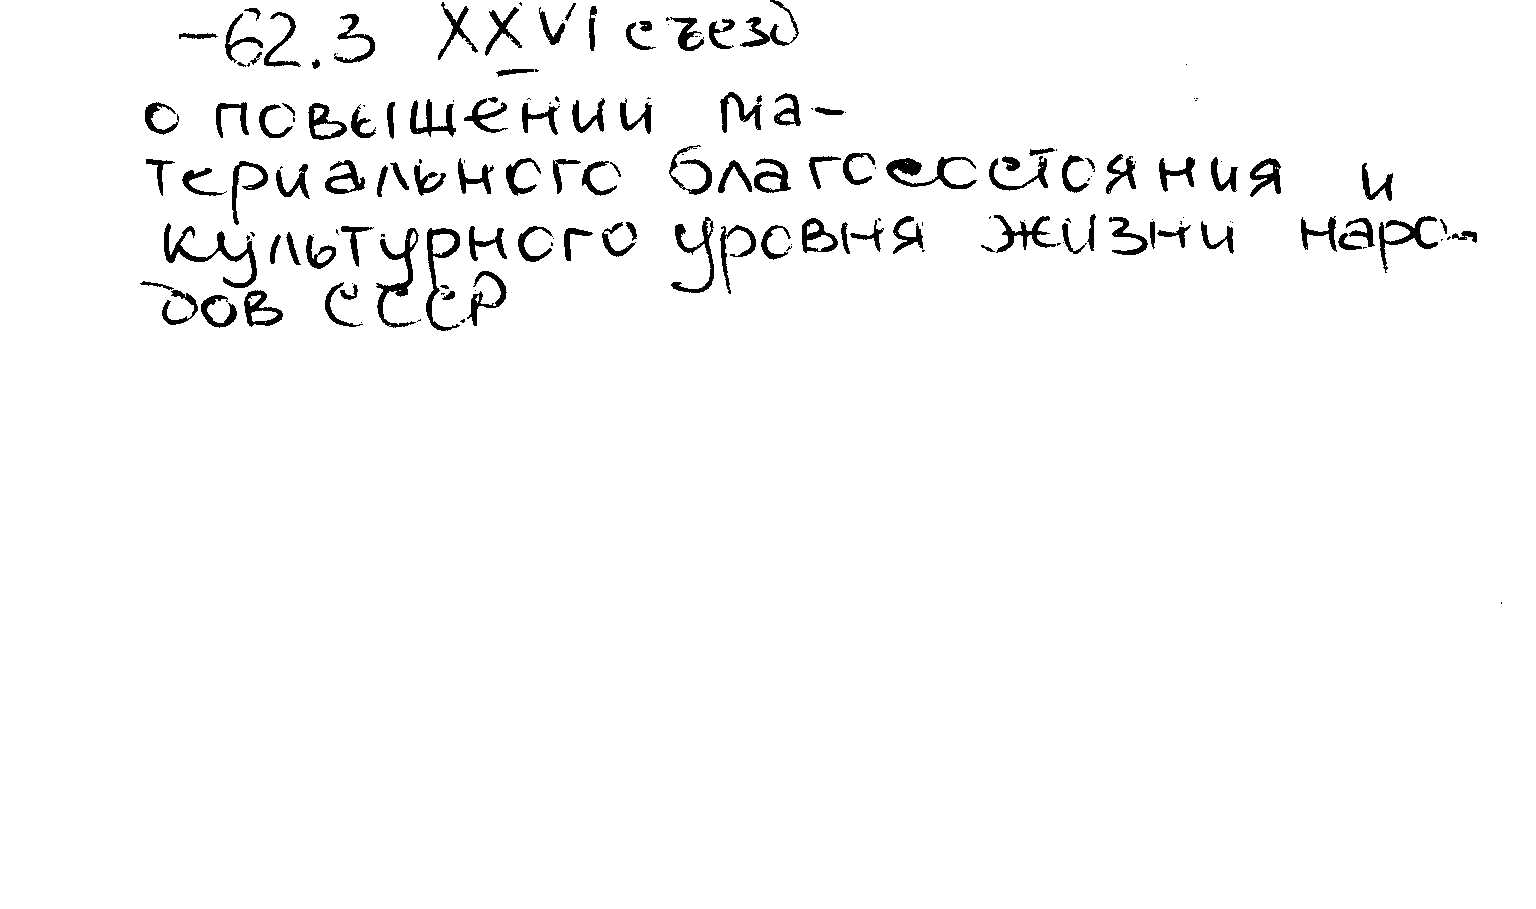 -62.3 XXVI съезд
о повышении ма-
териального благосостояния и
культурного уровня жизни наро-
дов СССР